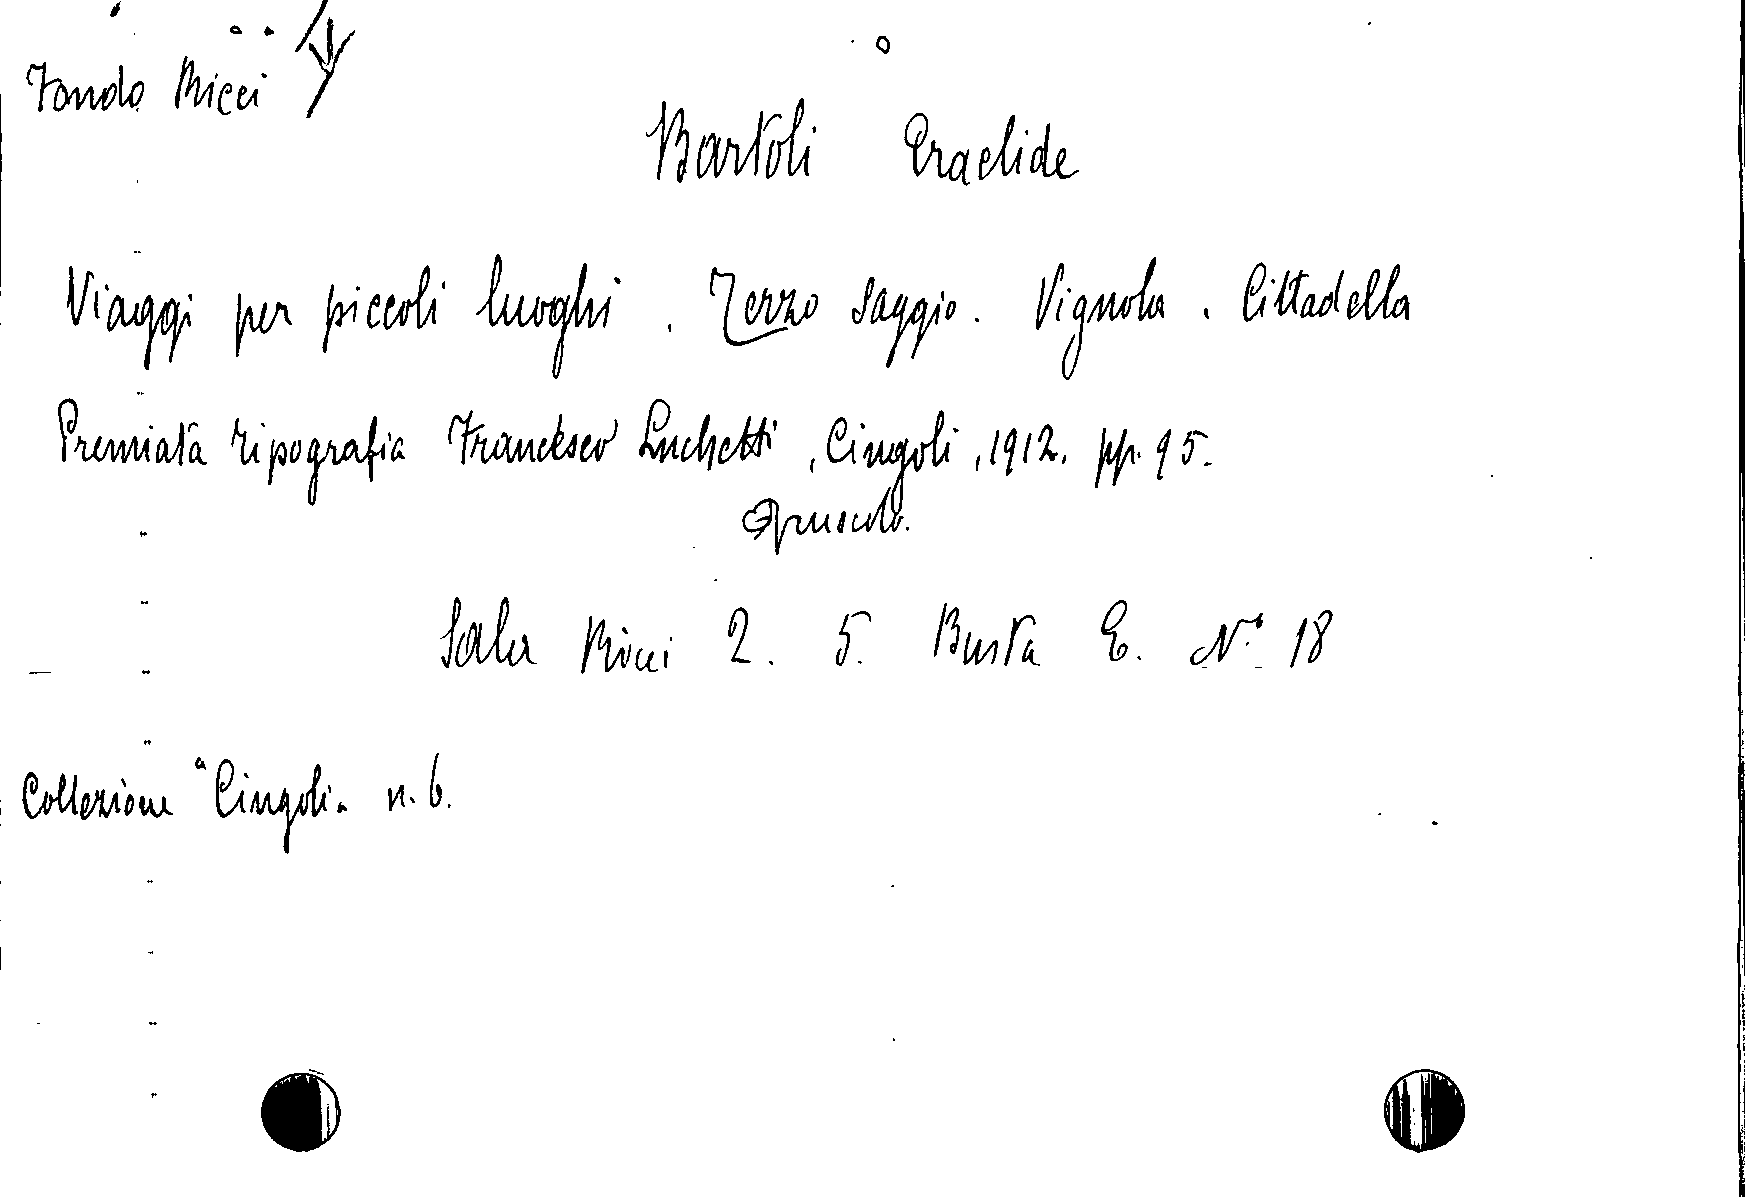 Fondo Ricci
Bartoli Eraclide
Viaggi per piccoli luoghi. Terzo saggio. Vignola. Cittadella
Premiata tipografia Francesco Luchetti, Cingoli, 1912. pp. 95.
Opuscolo.
Sala Ricci 2. 5. Busta E. N.° 18
Collezione "Cingoli" n. 6.